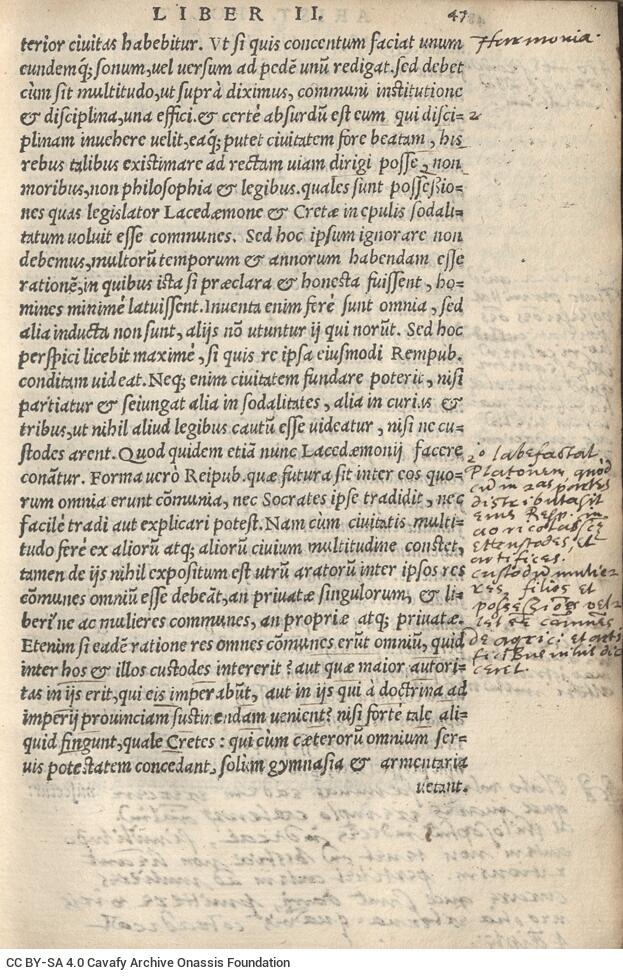 LIBER II. 47
terior ciuitas habebitur. Vt si quis concentum faciat unum
eundemq́; sonum, uel uersum ad pedẽ unũ redigat. sed debet
cùm sit multitudo, ut suprà diximus, communi institutione
& disciplina, una effici. & certè absurdũ est eum qui disci-
plinam inuehere uelit, eaq́; putet ciuitatem fore beatam, his
rebus talibus existimare ad rectam uiam dirigi posse, non
moribus, non philosophia & legibus. quales sunt possessio=
nes quas legislator Lacedæmone & Cretæ in epulis sodali=
tatum uoluit esse communes. Sed hoc ipsum ignorare non
debemus, multorũ temporum & annorum habendam esse
rationẽ, in quibus ista si præclara & honesta fuissent, ho=
mines minimè latuissent. Inuenta enim ferè sunt omnia, sed
alia inducta non sunt, alijs nõ utuntur ij qui norũt. Sed hoc
perspici licebit maximè, si quis re ipsa eiusmodi Rempub.
conditam uideat. Neq; enim ciuitatem fundare poterit, nisi
partiatur & seiungat alia in sodalitates, alia in curias &
tribus, ut nihil aliud legibus cautũ esse uideatur, nisi ne cu=
stodes arent. Quod quidem etiã nunc Lacedæmonij facere
conãtur. Forma uerò Reipub. quæ futura sit inter eos quo=
rum omnia erunt cõmunia, nec Socrates ipse tradidit, nec
facilè tradi aut explicari potest. Nam cùm ciuitatis multi=
tudo ferè ex aliorũ atq; aliorũ ciuium multitudine constet,
tamen de ijs nihil expositum est utrũ aratorũ inter ipsos res
cõmunes omniũ esse debeãt, an priuatæ singulorum, & li=
beri'ne ac mulieres communes, an propriæ atq; priuatæ.
Etenim si eadẽ ratione res omnes cõmunes erũt omniũ, quid
inter hos & illos custodes intererit? aut quæ maior autori=
tas in ijs erit, qui eis imperabũt, aut in ijs qui à doctrina ad
imperij prouinciam sustinendam uenient? nisi fortè tale ali=
quid fingunt, quale Cretes: qui cùm cæterorũ omnium ser=
uis potestatem concedant, solùm gymnasia & armentaria
uetant.
Harmonia.
2
2º labefactat
Platonem, quod
cum in 2as partes
distributa sit
eius Resp. in
agricolas
et custodes, et
artifices.
custodum mulie
res, filios et
possessiones vel
let esse communes
de agric. et arti
ficibus nihil di
ceret.
CC BY-SA 4.0 Cavafy Archive Onassis Foundation